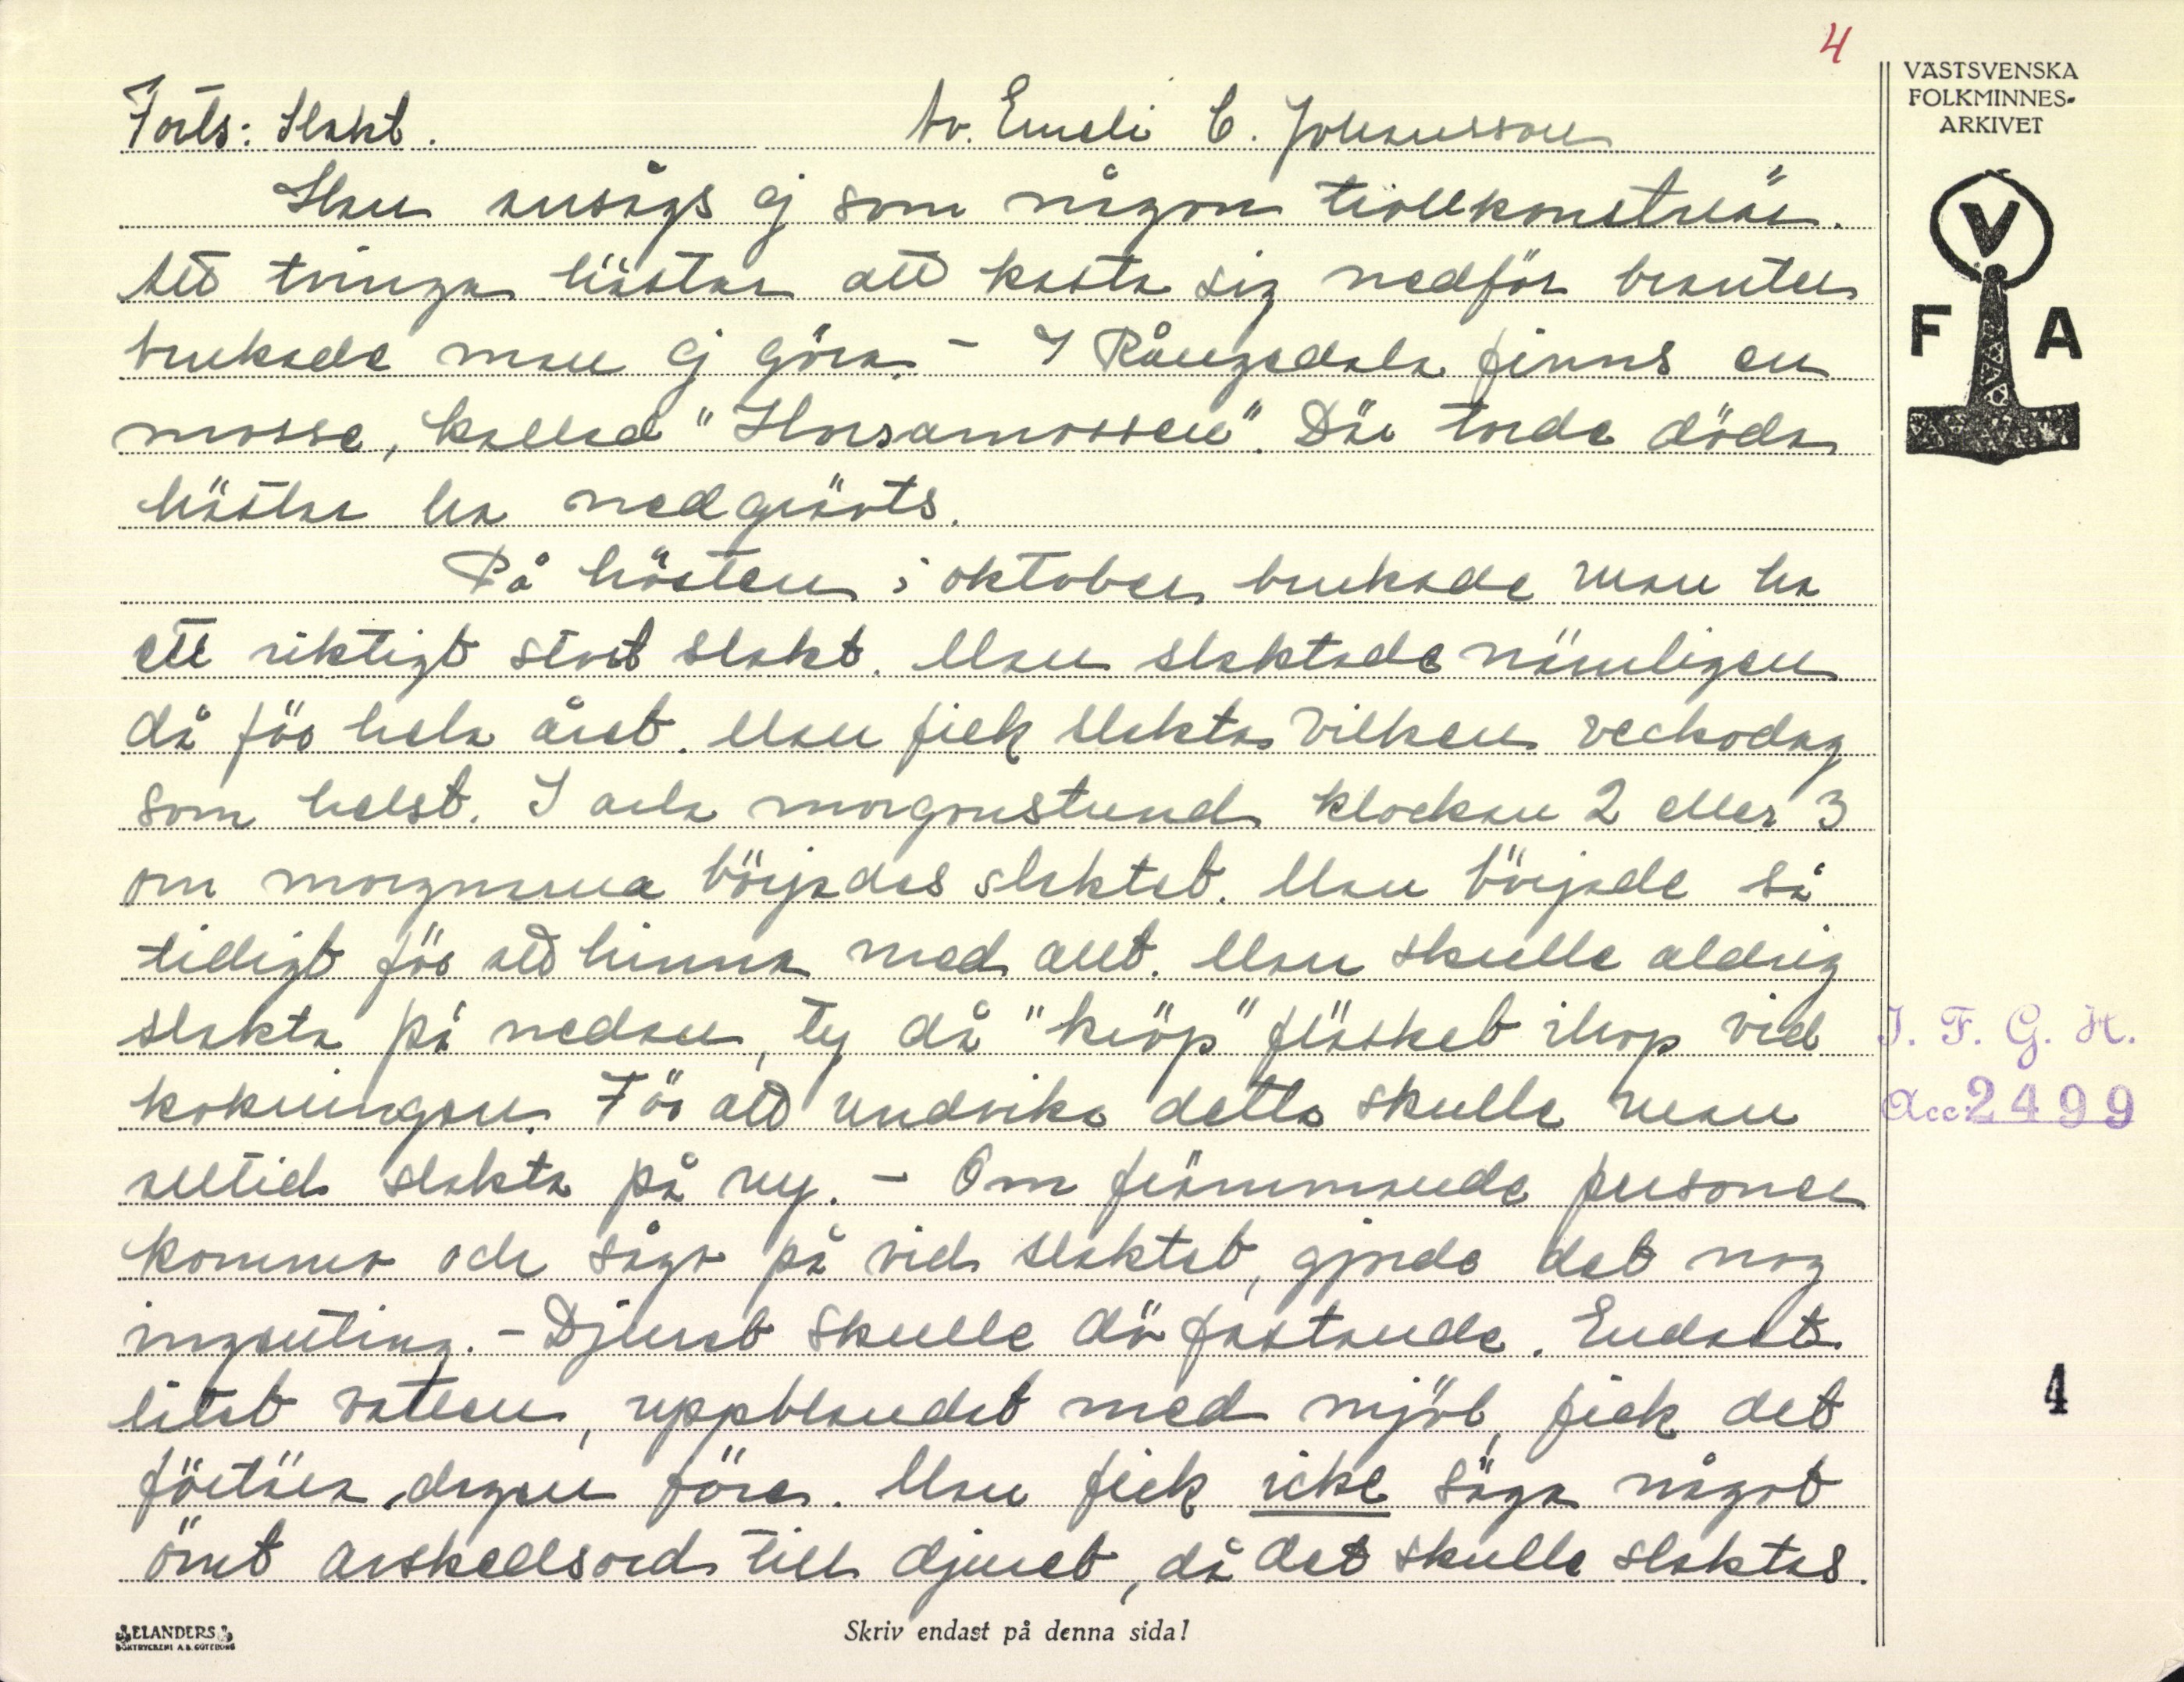 4
VÄSTSVENSKA
FOLKMINNES-
ARKIVET
V
F A
Forts: Slakt. Av. Emeli C. Johansson
Han ansågs ej som någon trollkonstnär.
Att tvinga hästar att kasta sig nedför branter
brukade man ej göra. - I Rångedala finns en
mosse, kallad "Horsamossen". Där torde döda
hästar ha nedgrävts.
På hösten i oktober brukade man ha
ett riktigt stort slakt. Man slaktade nämligen
då för hela året. Man fick slakta vilken veckodag
som helst. I arla morgonstund klockan 2 eller 3
om morgnarna börjades slaktet. Man började så
tidigt för att hinna med allt. Man skulle aldrig
slakta på nedan, ty då "kröp" fläsket ihop vid
kokningen. För att undvika detta skulle man
alltid slakta på ny. - Om främmande personer
kommo och sågo på vid slaktet, gjorde det nog
ingenting. - Djuret skulle dö fastande. Endast
litet vatten, uppblandat med mjöl, fick det
förtära dagen före. Man fick icke säga något
ömt avskedsord till djuret, då det skulle slaktas.
I. F. G. H.
Acc 2499
4
ELANDERS
BOKTRYCKERI A.B. GÖTEBORG
Skriv endast på denna sida!